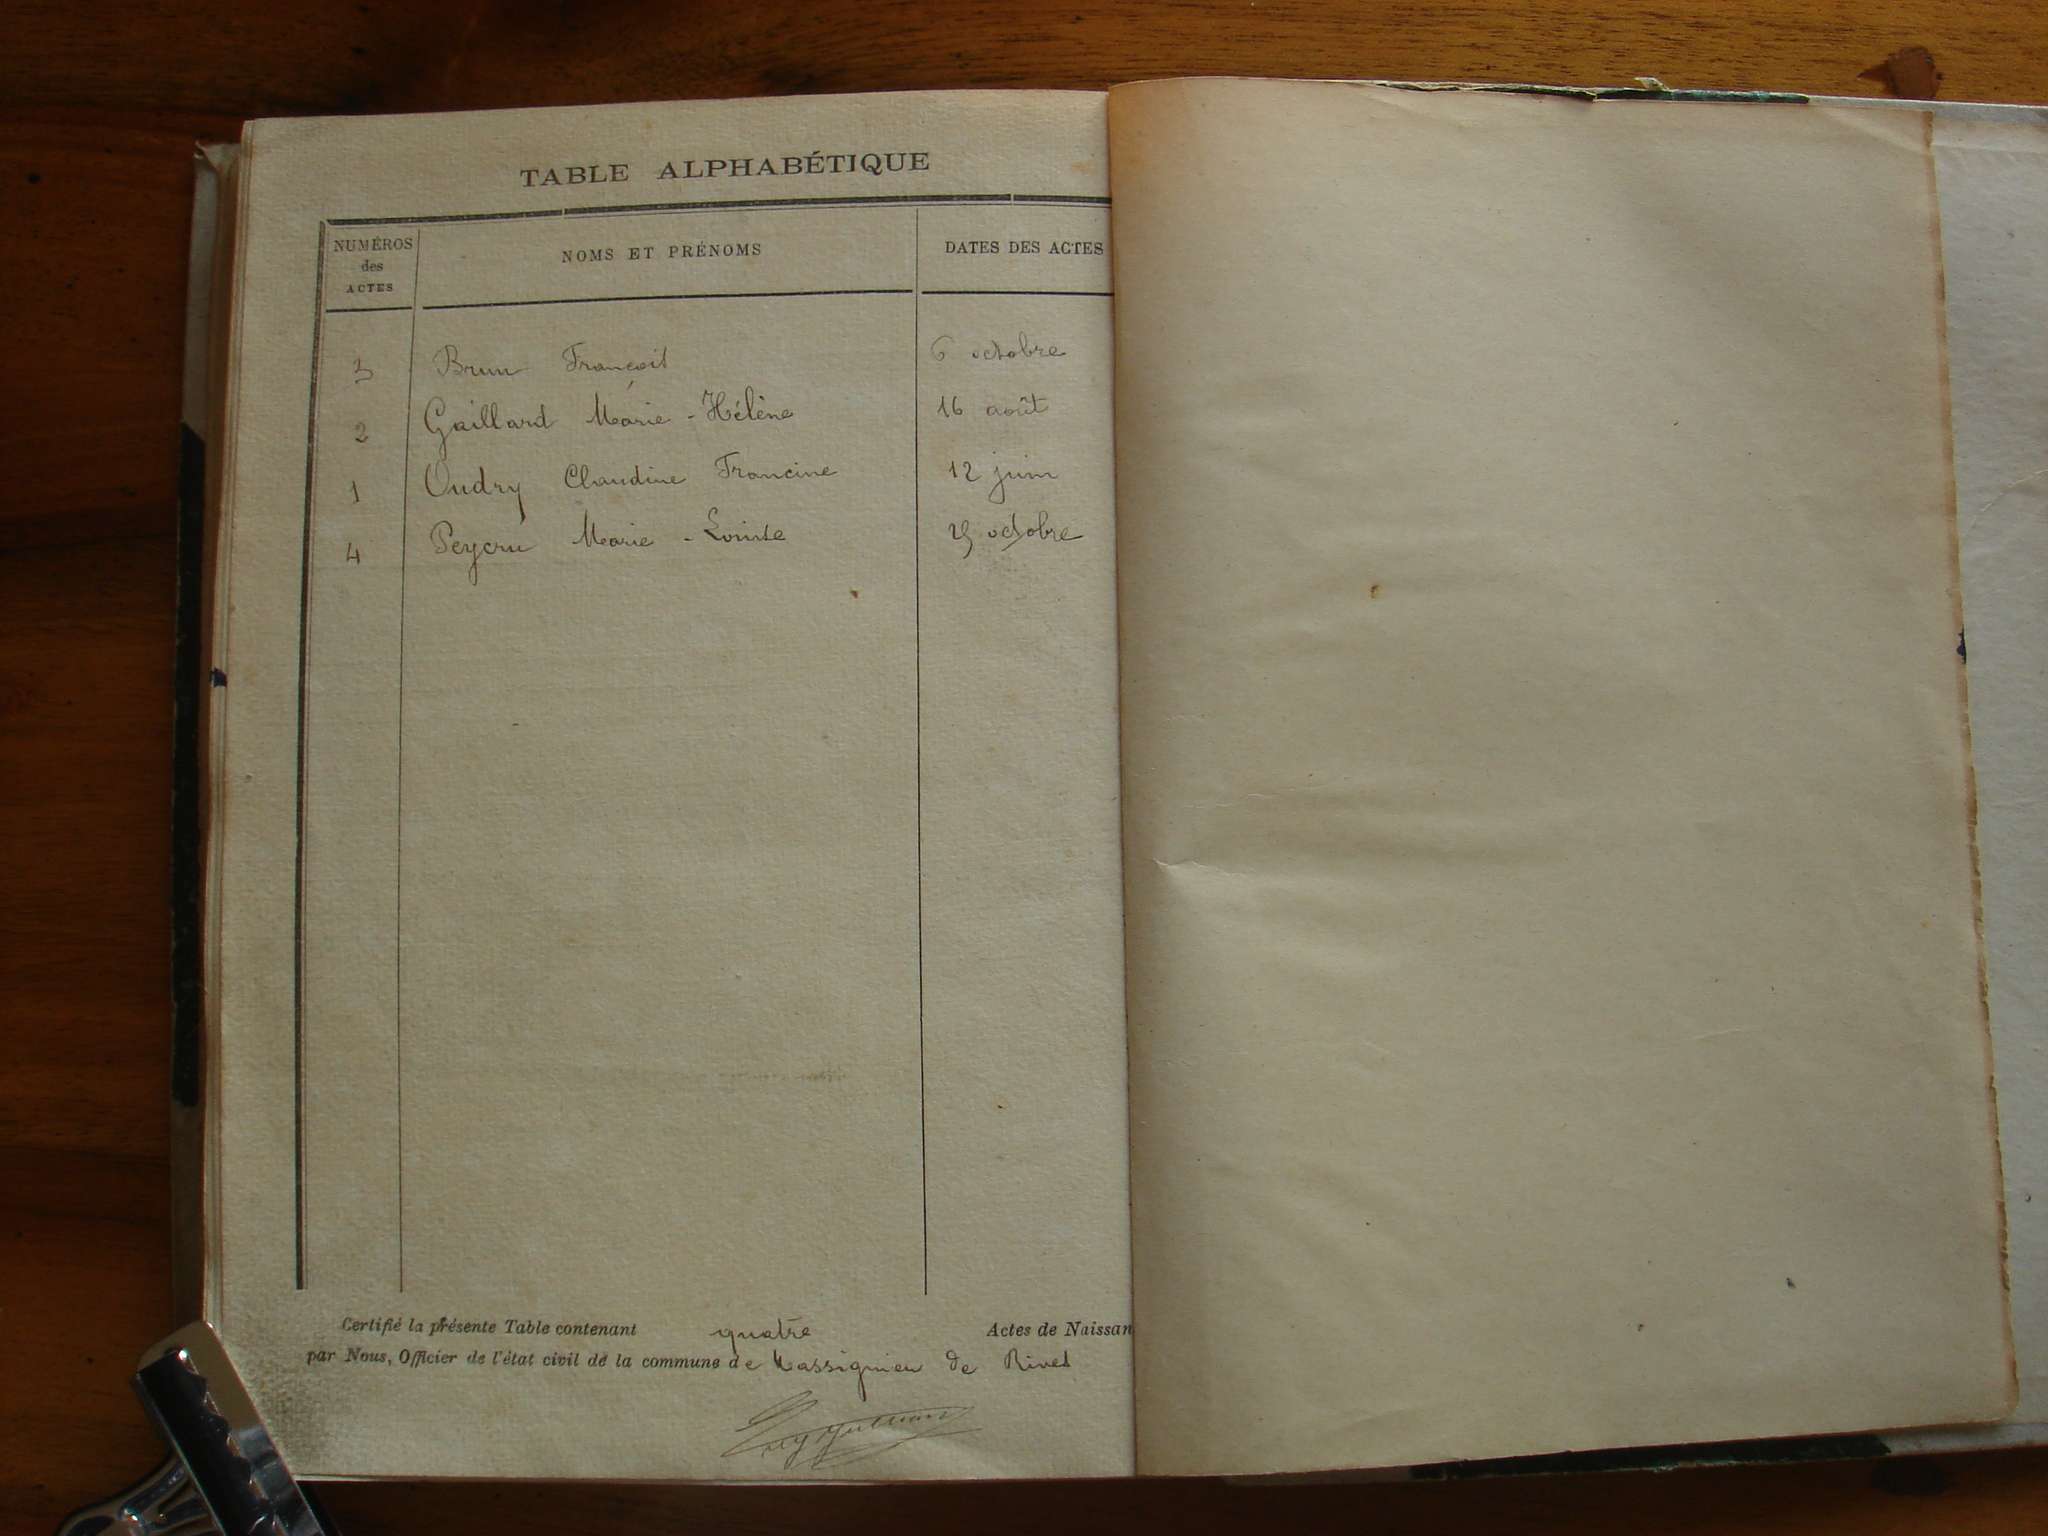 TABLE ALPHABÉTIQUE
NUMÉROS des ACTES NOMS ET PRÉNOMS DATES DES ACTES
3 Brun François 6 octobre
2 Gaillard Marie-Hélène 16 août
1 Oudry Claudine Francine 12 juin
4 Peycru Marie-Louise octobre
Certifié la présente Table contenant quatre Actes de Naissan
par Nous, Officier de l'état civil de la commune de Massignieu de Rives